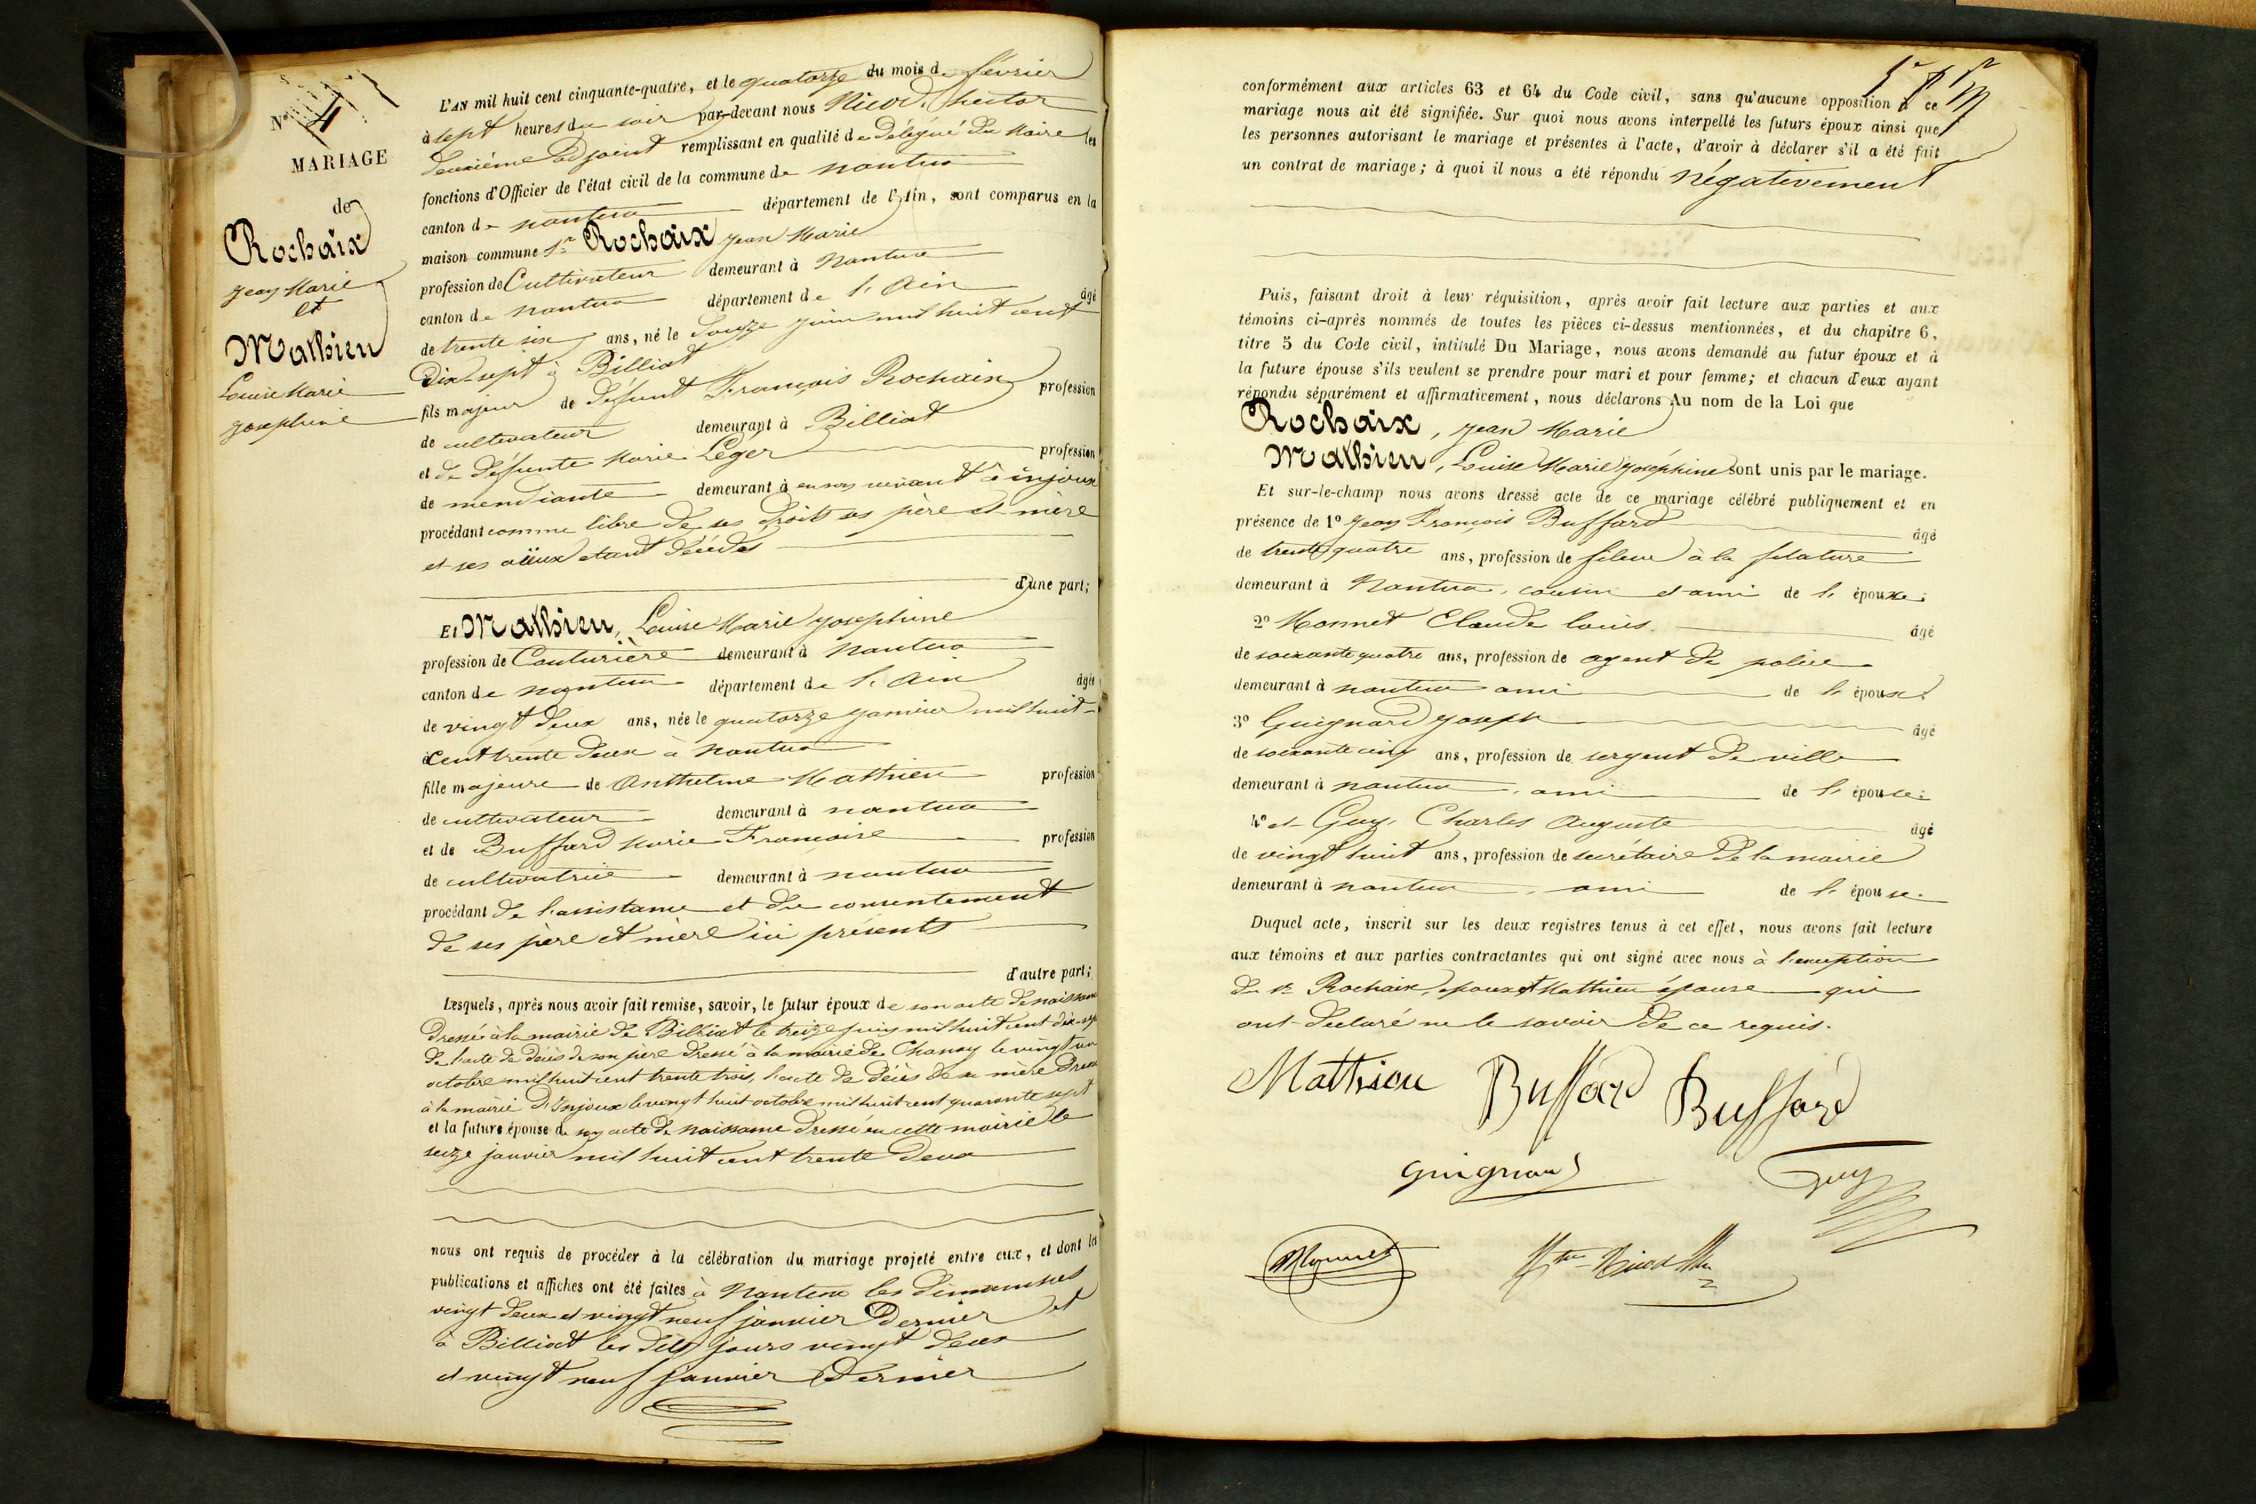 N° 4
MARIAGE
de
Rochaix
Jean Marie
et
Mathieu
Louise Marie
Joséphine
L'AN mil huit cent cinquante-quatre, et le quatorze du mois de février
à sept heures du soir par-devant nous Nicod, hector
deuxième adjoint remplissant en qualité de délégué du Maire les
fonctions d'Officier de l'état civil de la commune de nantua
canton de nantua département de l'Ain, sont comparus en la
maison commune Sr Rochaix Jean Marie
profession de Cultivateur demeurant à Nantua
canton de nantua département de l'Ain âgé
de trente six ans, né le douze juin mil huit cent
dix-sept à Billiat
fils majeur de défunt François Rochaix profession
de cultivateur demeurant à Billiat
et de défunte Marie Léger profession
de mendiante demeurant à en son vivant à injoux
procédant comme libre de ses droits ses père et mère
et ses aïeux étant décédés
d'une part;
Et Mathieu, Louise Marie Joséphine
profession de Couturière demeurant à Nantua
canton de nantua département de l'Ain âgée
de vingt deux ans, née le quatorze janvier mil huit
cent trente deux à nantua
fille majeure de Anthelme Mathieu profession
de cultivateur demeurant à nantua
et de Buffard Marie Françoise profession
de cultivatrice demeurant à nantua
procédant de l'assistance et du consentement
de ses père et mère ici présents
d'autre part;
Lesquels, après nous avoir fait remise, savoir, le futur époux de son acte de naissance
dressé à la mairie de Billiat le treize juin mil huit cent dix-sept
de l'acte de décès de son père dressé à la mairie de Chanay le vingt un
octobre mil huit cent trente trois, l'acte de décès de sa mère dressé
à la mairie d'Injoux le vingt huit octobre mil huit cent quarante sept
et la future épouse de son acte de naissance dressé en cette mairie le
seize janvier mil huit cent trente deux
nous ont requis de procéder à la célébration du mariage projeté entre eux, et dont les
publications et affiches ont été faites à Nantua les dimanches
vingt deux et vingt neuf janvier dernier et
à Billiat les dits jours vingt deux
et vingt neuf janvier dernier
conformément aux articles 63 et 64 du Code civil, sans qu'aucune opposition à ce
mariage nous ait été signifiée. Sur quoi nous avons interpellé les futurs époux ainsi que
les personnes autorisant le mariage et présentes à l'acte, d'avoir à déclarer s'il a été fait
un contrat de mariage; à quoi il nous a été répondu négativement
Puis, faisant droit à leur réquisition, après avoir fait lecture aux parties et aux
témoins ci-après nommés de toutes les pièces ci-dessus mentionnées, et du chapitre 6,
titre 5 du Code civil, intitulé Du Mariage, nous avons demandé au futur époux et à
la future épouse s'ils veulent se prendre pour mari et pour femme; et chacun d'eux ayant
répondu séparément et affirmativement, nous déclarons Au nom de la Loi que
Rochaix, Jean Marie
Mathieu, Louise Marie Joséphine sont unis par le mariage.
Et sur-le-champ nous avons dressé acte de ce mariage célébré publiquement et en
présence de 1° Jean François Buffard âgé
de trente quatre ans, profession de fileur à la filature
demeurant à Nantua, cousin et ami de l'épouse.
2° Monnet Claude louis âgé
de soixante quatre ans, profession de agent de police
demeurant à nantua ami de l'épouse.
3° Guignard Joseph âgé
de soixante cinq ans, profession de sergent de ville
demeurant à nantua, ami de l'épouse.
4° et Guy, Charles Auguste âgé
de vingt huit ans, profession de secrétaire de la mairie
demeurant à nantua, ami de l'épouse.
Duquel acte, inscrit sur les deux registres tenus à cet effet, nous avons fait lecture
aux témoins et aux parties contractantes qui ont signé avec nous à l'exception
de sr Rochaix, époux et Mathieu épouse qui
ont déclaré ne le savoir de ce requis.
Mathieu Buffard Buffard
Guignard Guy
Monnet Hor Nicod